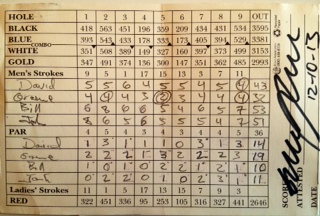 HOLE 1 2 3 4 5 6 7 8 9 OUT
BLACK 418 563 451 196 359 209 434 431 534 3595
BLUE 393 543 433 178 333 173 405 394 529 3381
COMBO
WHITE 351 508 389 149 327 160 397 373 499 3153
GOLD 347 491 374 136 300 147 351 362 485 2993
Men's Strokes 9 5 1 17 15 13 3 7 11
David 5 5 6 4 5 5 4 5 4 43
4 4 4 3 2 3 4 4 4 32
Bill 6 8 6 6 5 4 6 5 7 53
Joh 8 6 5 6 5 5 5 4 7 51
PAR 4 5 4 3 4 3 4 4 5 36
David 1 3 1 1 1 0 3 1 3 14
2 2 2 1 3 2 2 2 3 19
Bill 1 0 1 0 2 2 1 2 1 10
0 2 2 0 1 0 2 3 1 11
Ladies' Strokes 11 1 5 17 13 15 7 9 3
RED 322 451 336 95 253 105 316 327 441 2646
SCORER
ATTESTED
DATE
12-10-13